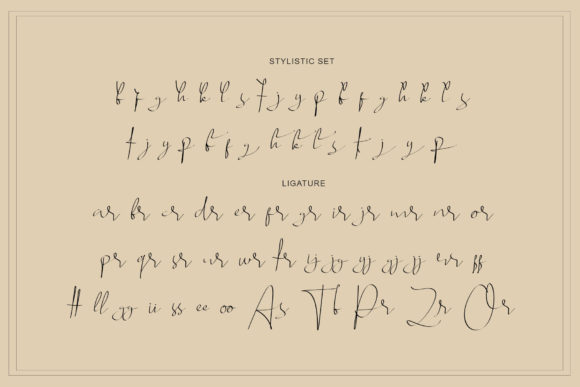 STYLISTIC SET
b f g h k l s t j y p b f g h k l s
t j y p b f g h k l s t j y p
LIGATURE
ar br cr dr er fr gr ir jr mr nr or
pr qr sr ur wr tr ij jj ff
tt ll gg ii ss ee oo As Pr Zr Or